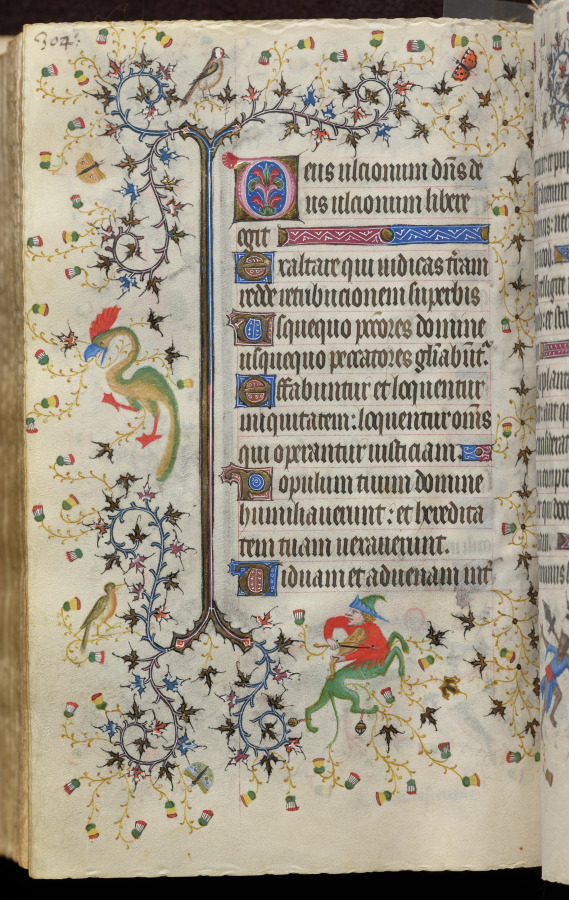 304
Deus ulcionum dñs de
us ulcionum libere
egit
Exaltare qui iudicas t̃ram
redde retribucionem superbis
Usquequo pecc̃ores domine
usquequo peccatores gl̃iabunt͛
Effabuntur et loquentur
iniquitatem: loquentur om̃s
qui operantur iusticiam.
Populum tuum domine
humiliauerunt: et heredita
tem tuam uexauerunt.
Uiduam et aduenam int̃